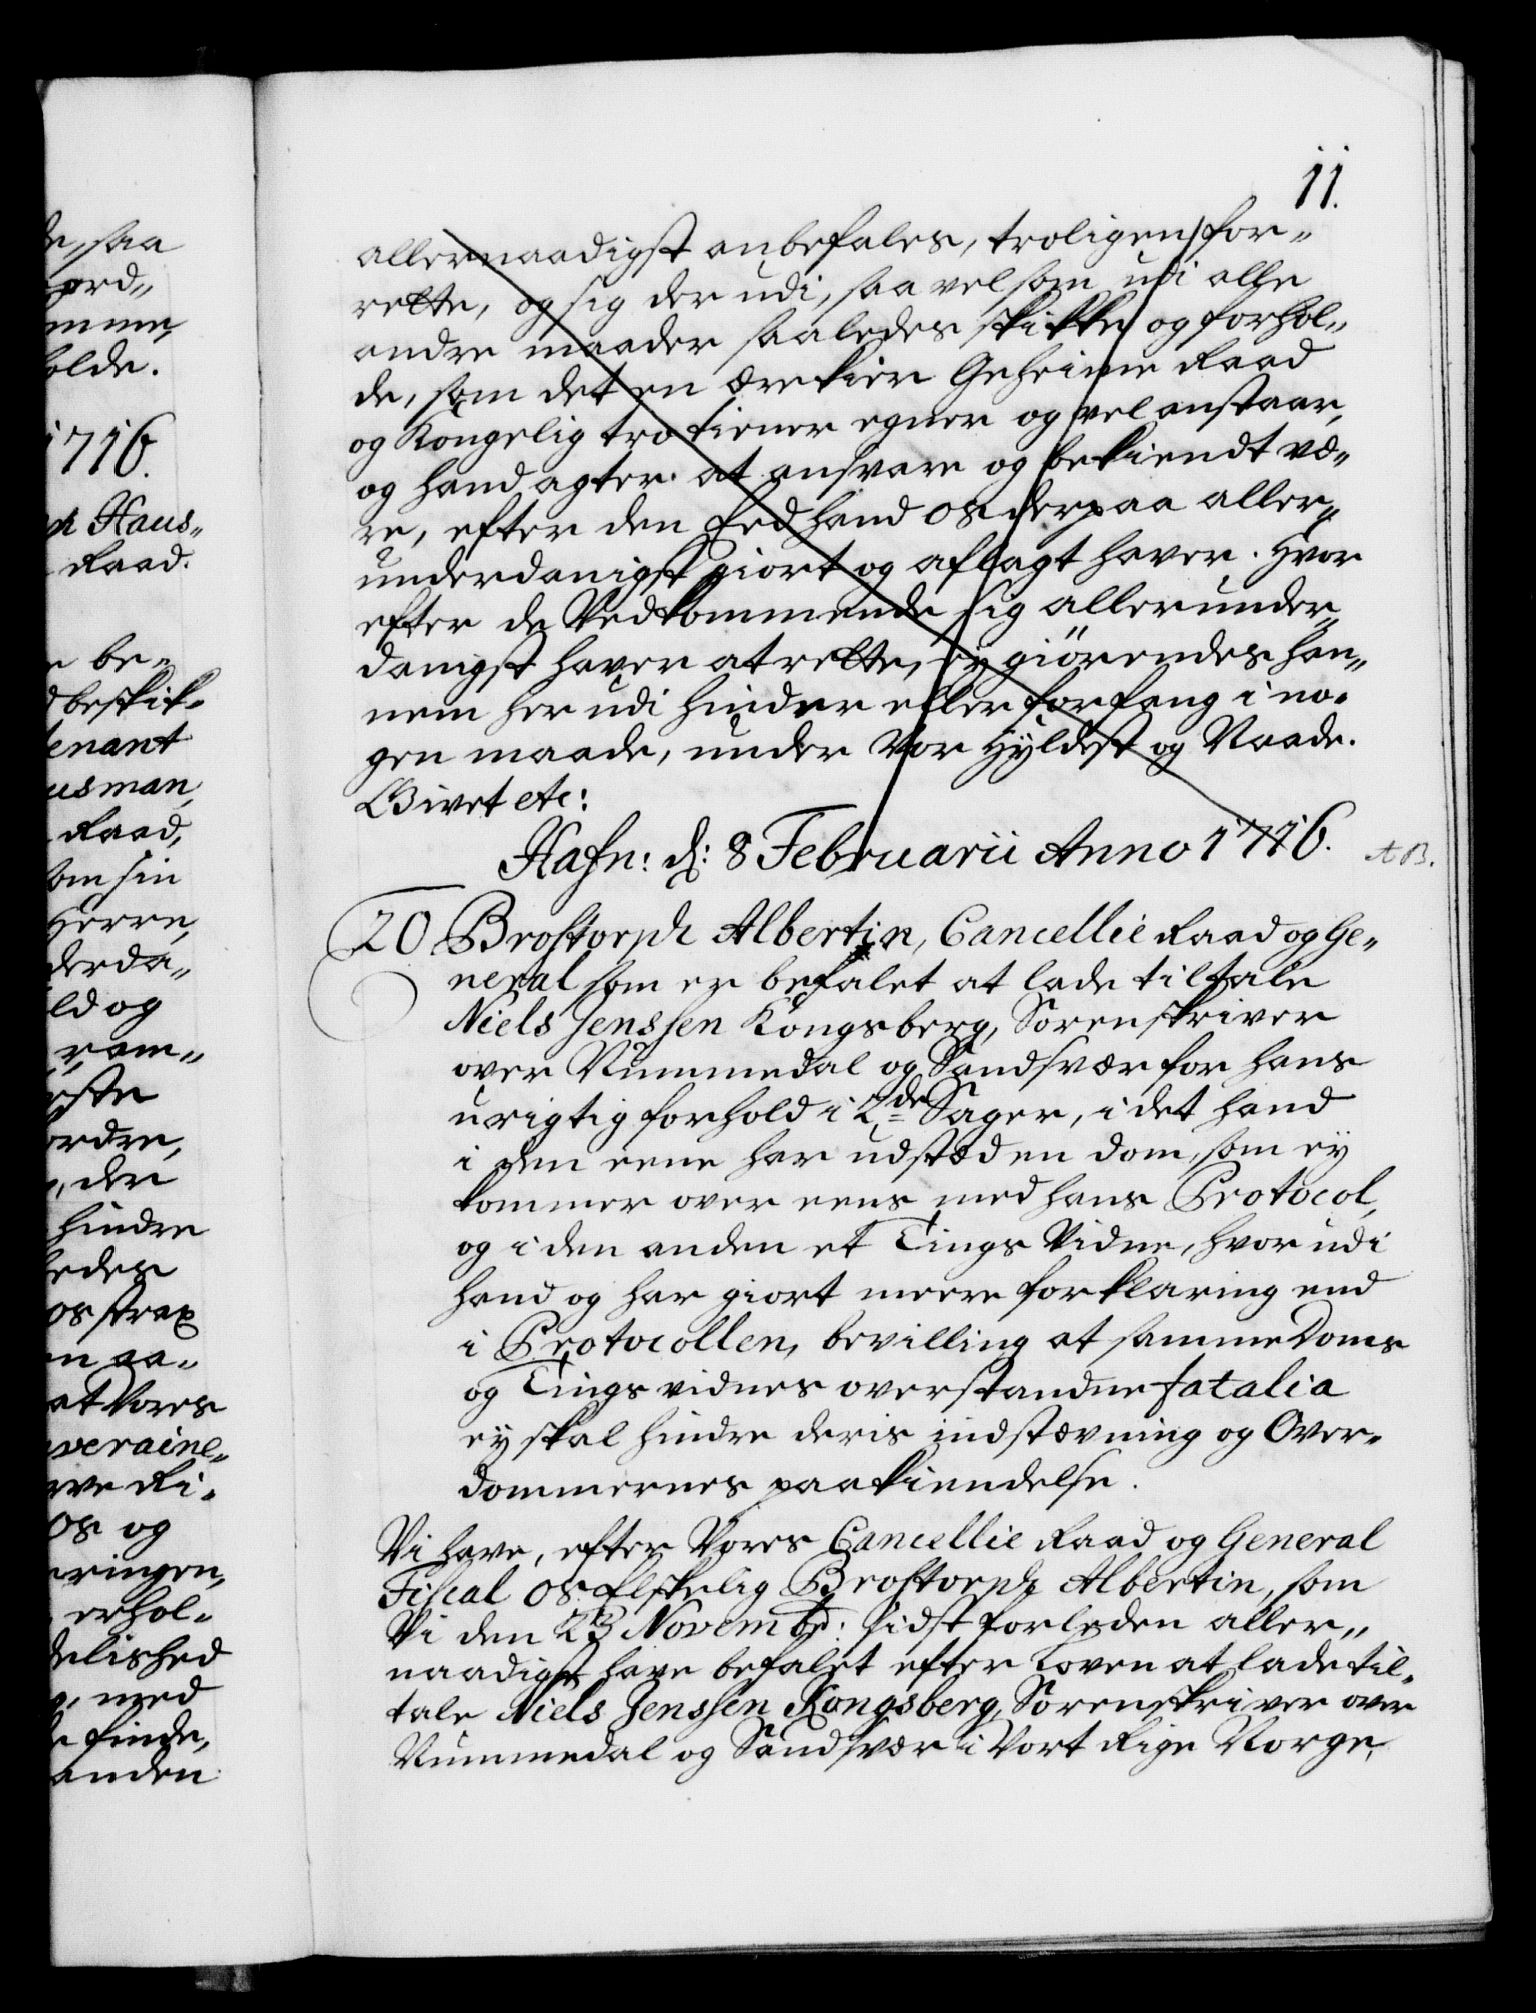 de, saa
ord„
mme,
olde.
1716.
ph Haus„
Raad.
be„
beskik„
enant
usman,
Raad,
om sin
Herre,
derda„
ld og
ram„
ste
ordre,
, der
hindre
ledes
os strax
en aa„
at Vores
veraine„
rve Ri„
os og
eringen,
erhol„
delished
, med
finde,
anden
11.
allernaadigst anbefales, troligen for„
rette, og sig der udi, saa vel som udi alle
andre maader saaledes skikke og forhol„
de, som det en ærekier Geheime Raad
og Kongelig tro tiener egner og vel anstaar,
og hand agter at ansvare og bekiendt væ„
re, efter den Eed hand os derpaa aller„
underdanigst giort og aflagt haver. Hvor
efter de Vedkommende sig allerunder„
danigst haver at rette, ey giörendes han„
nem her udi hinder eller forfang i no„
gen maade, under Vor Hyldest og Naade.
Givet etc:
Hafn: d: 8 Februarii Anno 1716.
AB.
20 Brostorph Albertin, Cancellie Raad og Ge„
neral som er befalet at lade tiltale
Niels Jenssen Kongsberg, Sorenskriver
over Nummedal og Sandsvær for hans
urigtig forhold i 2de Sager, i det hand
i den eene har udstæd en dom, som ey
kommer over eens med hans Protocol,
og i den anden et Tings Vidne, hvor udi
hand og har giort meere forklaring end
i Protocollen, bevilling at samme Doms
og Tings vidnes overstandne fatalia
ey skal hindre deris indstævning og Over„
dommernes paakiendelse.
Vi have, efter Vores Cancellie Raad og General
Fiscal os Elskelig Brostorph Albertin, som
Vi den 23 Novembr: sidst forleden aller„
naadigst have befalet efter Loven at lade til„
tale Niels Jenssen Kongsberg, Sorenskriver over
Nummedal og Sandsvær i Vort Rige Norge,